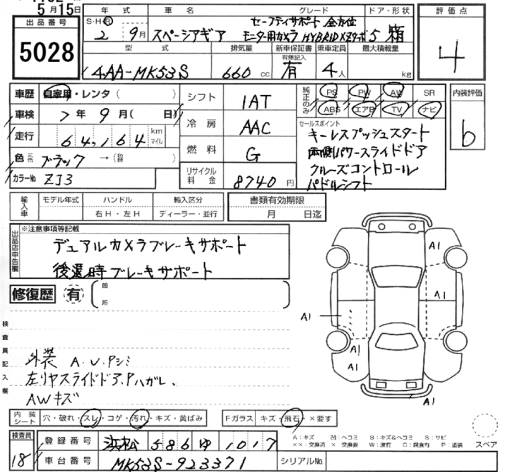 5月15日
出品番号
5028
年式 車名 グレード ドア・形状
S・H・R 2年9月 スペーシアギア セーフティサポート 全方位
モニター用カメラ HYBRID XZターボ 5 箱
型式 排気量 新車保証書 乗車定員 最大積載量
有無記入
4AA-MK53S 660 cc 有 4人 kg
評価点
4
車歴 自家用・レンタ( )
車検 7年9月( 日)
走行 64,164 km マイル
色 ブラック →( )
カラーNo ZJ3
シフト 1AT
冷房 AAC
燃料 G
リサイクル料金 8740円
純正のみ PS PW AW SR
ABS エアB TV ナビ
セールスポイント
キーレスプッシュスタート
両側パワースライドドア
クルーズコントロール
パドルシフト
内装評価
b
輸入車 モデル年式 ハンドル 輸入区分
年 右H・左H ディーラー・並行
書類有効期限
月 日迄
出品店申告欄
※注意事項等記載
デュアルカメラブレーキサポート
後退時ブレーキサポート
修復歴 有
箇所
検査員記入欄
外装 A.U.Pシミ
左リヤスライドドア.Pハガレ.
AWキズ
A1
A1
A1
A1
A1
内装シート 穴・破れ・スレ・コゲ・汚れ・キズ・黄ばみ
Fガラス キズ・飛石・×要す
スペア
A:キズ M:ヘコミ B:キズ&ヘコミ S:サビ
検査員 18
登録番号 浜松 586 ゆ 1017
車台番号 MK53S-923371
シリアルNo